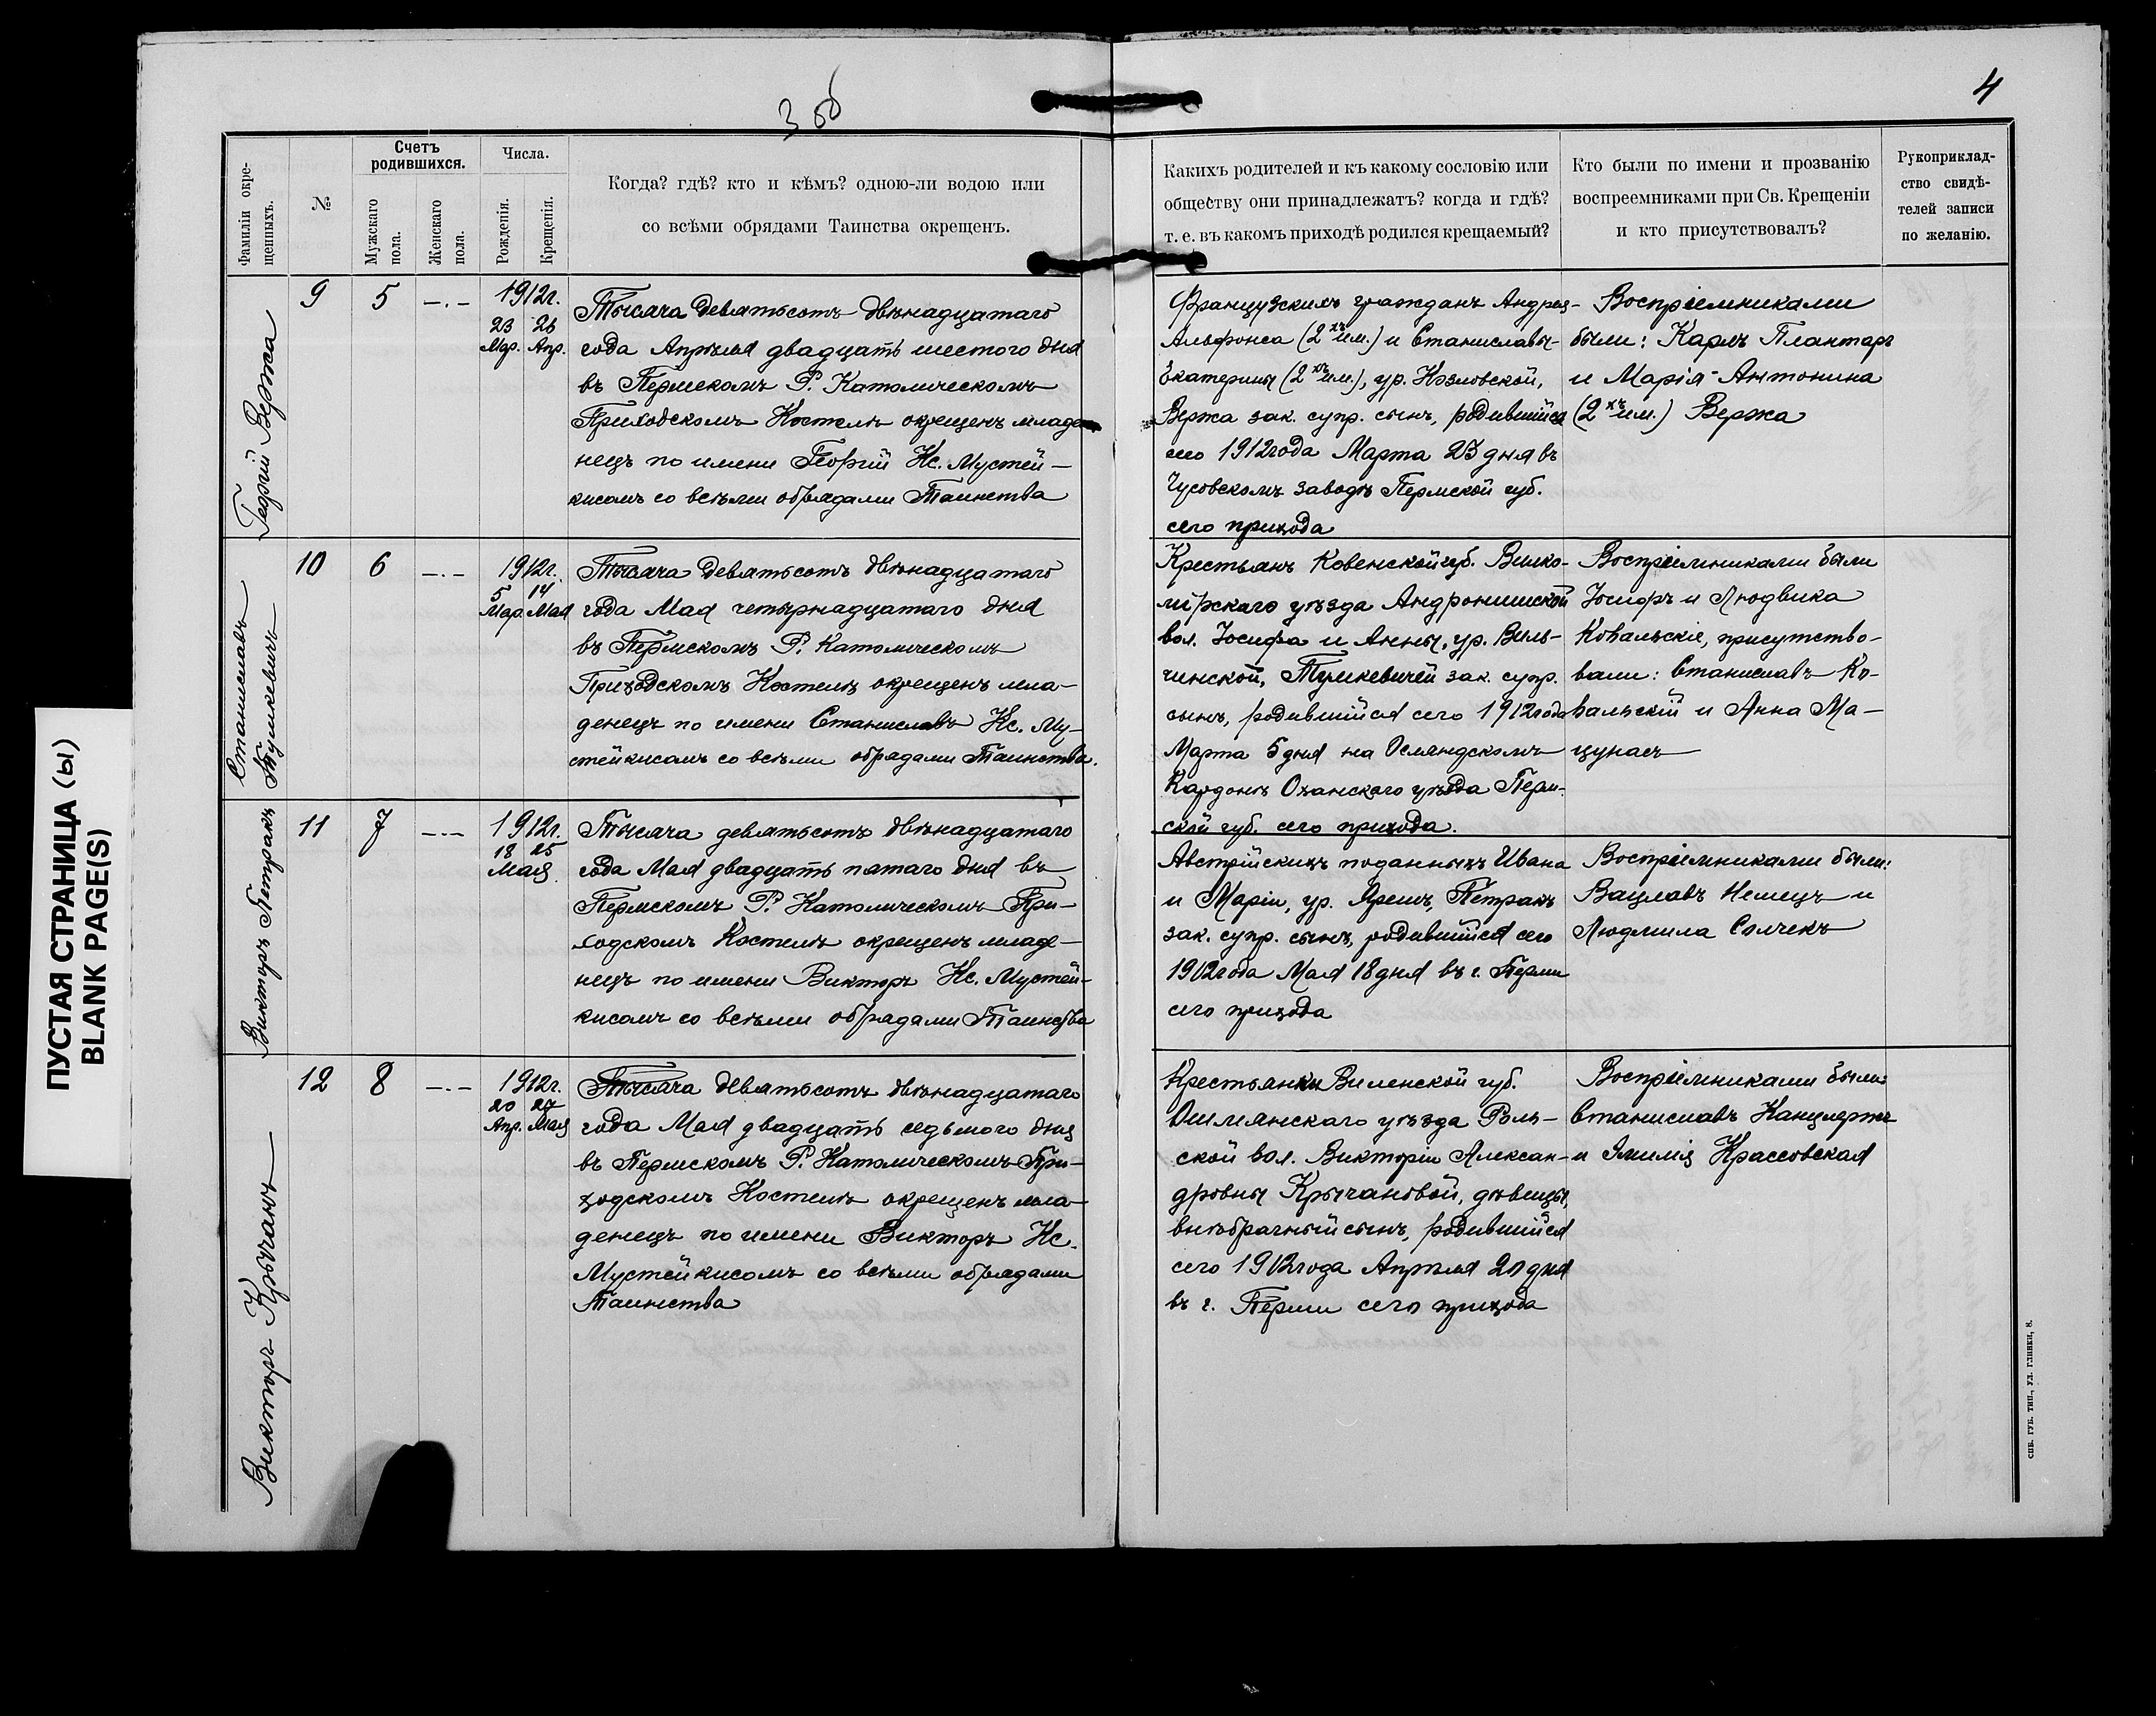 3 об
4
ПУСТАЯ СТРАНИЦА (ы)
BLANK PAGE(S)
Фамиліи окре-
щенныхъ.
№
Счетъ
родившихся.
Мужскаго
пола.
Женскаго
пола.
Числа.
Рожденія.
Крещенія.
Когда? гдѣ? кто и кѣмъ? одною-ли водою или
со всѣми обрядами Таинства окрещенъ.
Какихъ родителей и къ какому сословію или
обществу они принадлежатъ? когда и гдѣ?
т. е. въ какомъ приходѣ родился крещаемый?
Кто были по имени и прозванію
воспреемниками при Св. Крещеніи
и кто присутствовалъ?
Рукоприклад-
ство свидѣ-
телей записи
по желанію.
Георгій Вержа
9
5
—.—
1912г.
23 26
Мар. Апр.
Тысяча девятьсотъ двѣнадцатаго
года Апрѣля двадцать шестого дня
въ Пермскомъ Р. Католическомъ
Приходскомъ Костелѣ окрещенъ младе
нецъ по имени Георгій Кс. Мустей—
кисомъ со всѣми обрядами Таинства
Французскихъ гражданъ Андрея-
Альфонса (2хъ им.) и Станиславы-
Екатерины (2хъ им.), ур. Козловской,
Вержа зак. супр. сынъ, родившійся
сего 1912 года Марта 23 дня въ
Чусовскомъ заводѣ Пермской губ.
сего прихода
Воспріемниками
были: Карлъ Плантаръ
и Марія-Антонина
(2хъ им.) Вержа
Станиславъ
Тумкевичъ
10
6
—.—
1912г.
5 14
Мар. Мая
Тысяча девятьсотъ двѣнадцатаго
года Мая четырнадцатаго дня
въ Пермскомъ Р. Католическомъ
Приходскомъ Костелѣ окрещенъ мла—
денецъ по имени Станиславъ Кс. Му-
стейкисомъ со всѣми обрядами Таинства.
Крестьянъ Ковенской губ. Вилко-
мірскаго уѣзда Андронишской
вол. Іосифа и Анны, ур. Виль-
чинской, Тумкевичей зак. супр.
сынъ, родившійся сего 1912 года
Марта 5 дня на Осляндскомъ
Кордонѣ Оханскаго уѣзда Перм-
ской губ. сего прихода.
Воспріемниками были
Іосифъ и Людвика
Ковальскіе, присутство-
вали: Станиславъ Ко-
вальскій и Анна Ма—
цунасъ
Викторъ Петракъ
11
7
—.—
1912г.
18 25
Мая
Тысяча девятьсотъ двѣнадцатаго
года Мая двадцать пятаго дня въ
Пермскомъ Р. Католическомъ При—
ходскомъ Костелѣ окрещенъ младе—
нецъ по имени Викторъ Кс. Мустей-
кисомъ со всѣми обрядами Таинства
Австрійскихъ поданныхъ Ивана
и Маріи, ур. Ярешъ, Петракъ
зак. супр. сынъ, родившійся сего
1912 года Мая 18 дня въ г. Перми
сего прихода
Воспріемниками были:
Вацлавъ Немецъ и
Людмила Солчекъ
Викторъ Крычанъ
12
8
—.—
1912г.
20 27
Апр. Мая
Тысяча девятьсотъ двѣнадцатаго
года Мая двадцать седьмого дня
въ Пермскомъ Р. Католическомъ При—
ходскомъ Костелѣ окрещенъ мла
денецъ по имени Викторъ Кс.
Мустейкисомъ со всѣми обрядами
Таинства
Крестьянки Виленской губ.
Ошмянскаго уѣзда Поль—
ской вол. Викторіи Алексан-
дровны Крычановой, дѣвицы,
внѣбрачный сынъ, родившійся
сего 1912 года Апрѣля 20 дня
въ г. Перми сего прихода
Воспріемниками были:
Станиславъ Канцляржъ
и Эмилія Крассовская
СПБ. ГУБ. ТИП., УЛ. ГЛИНКИ, 8.